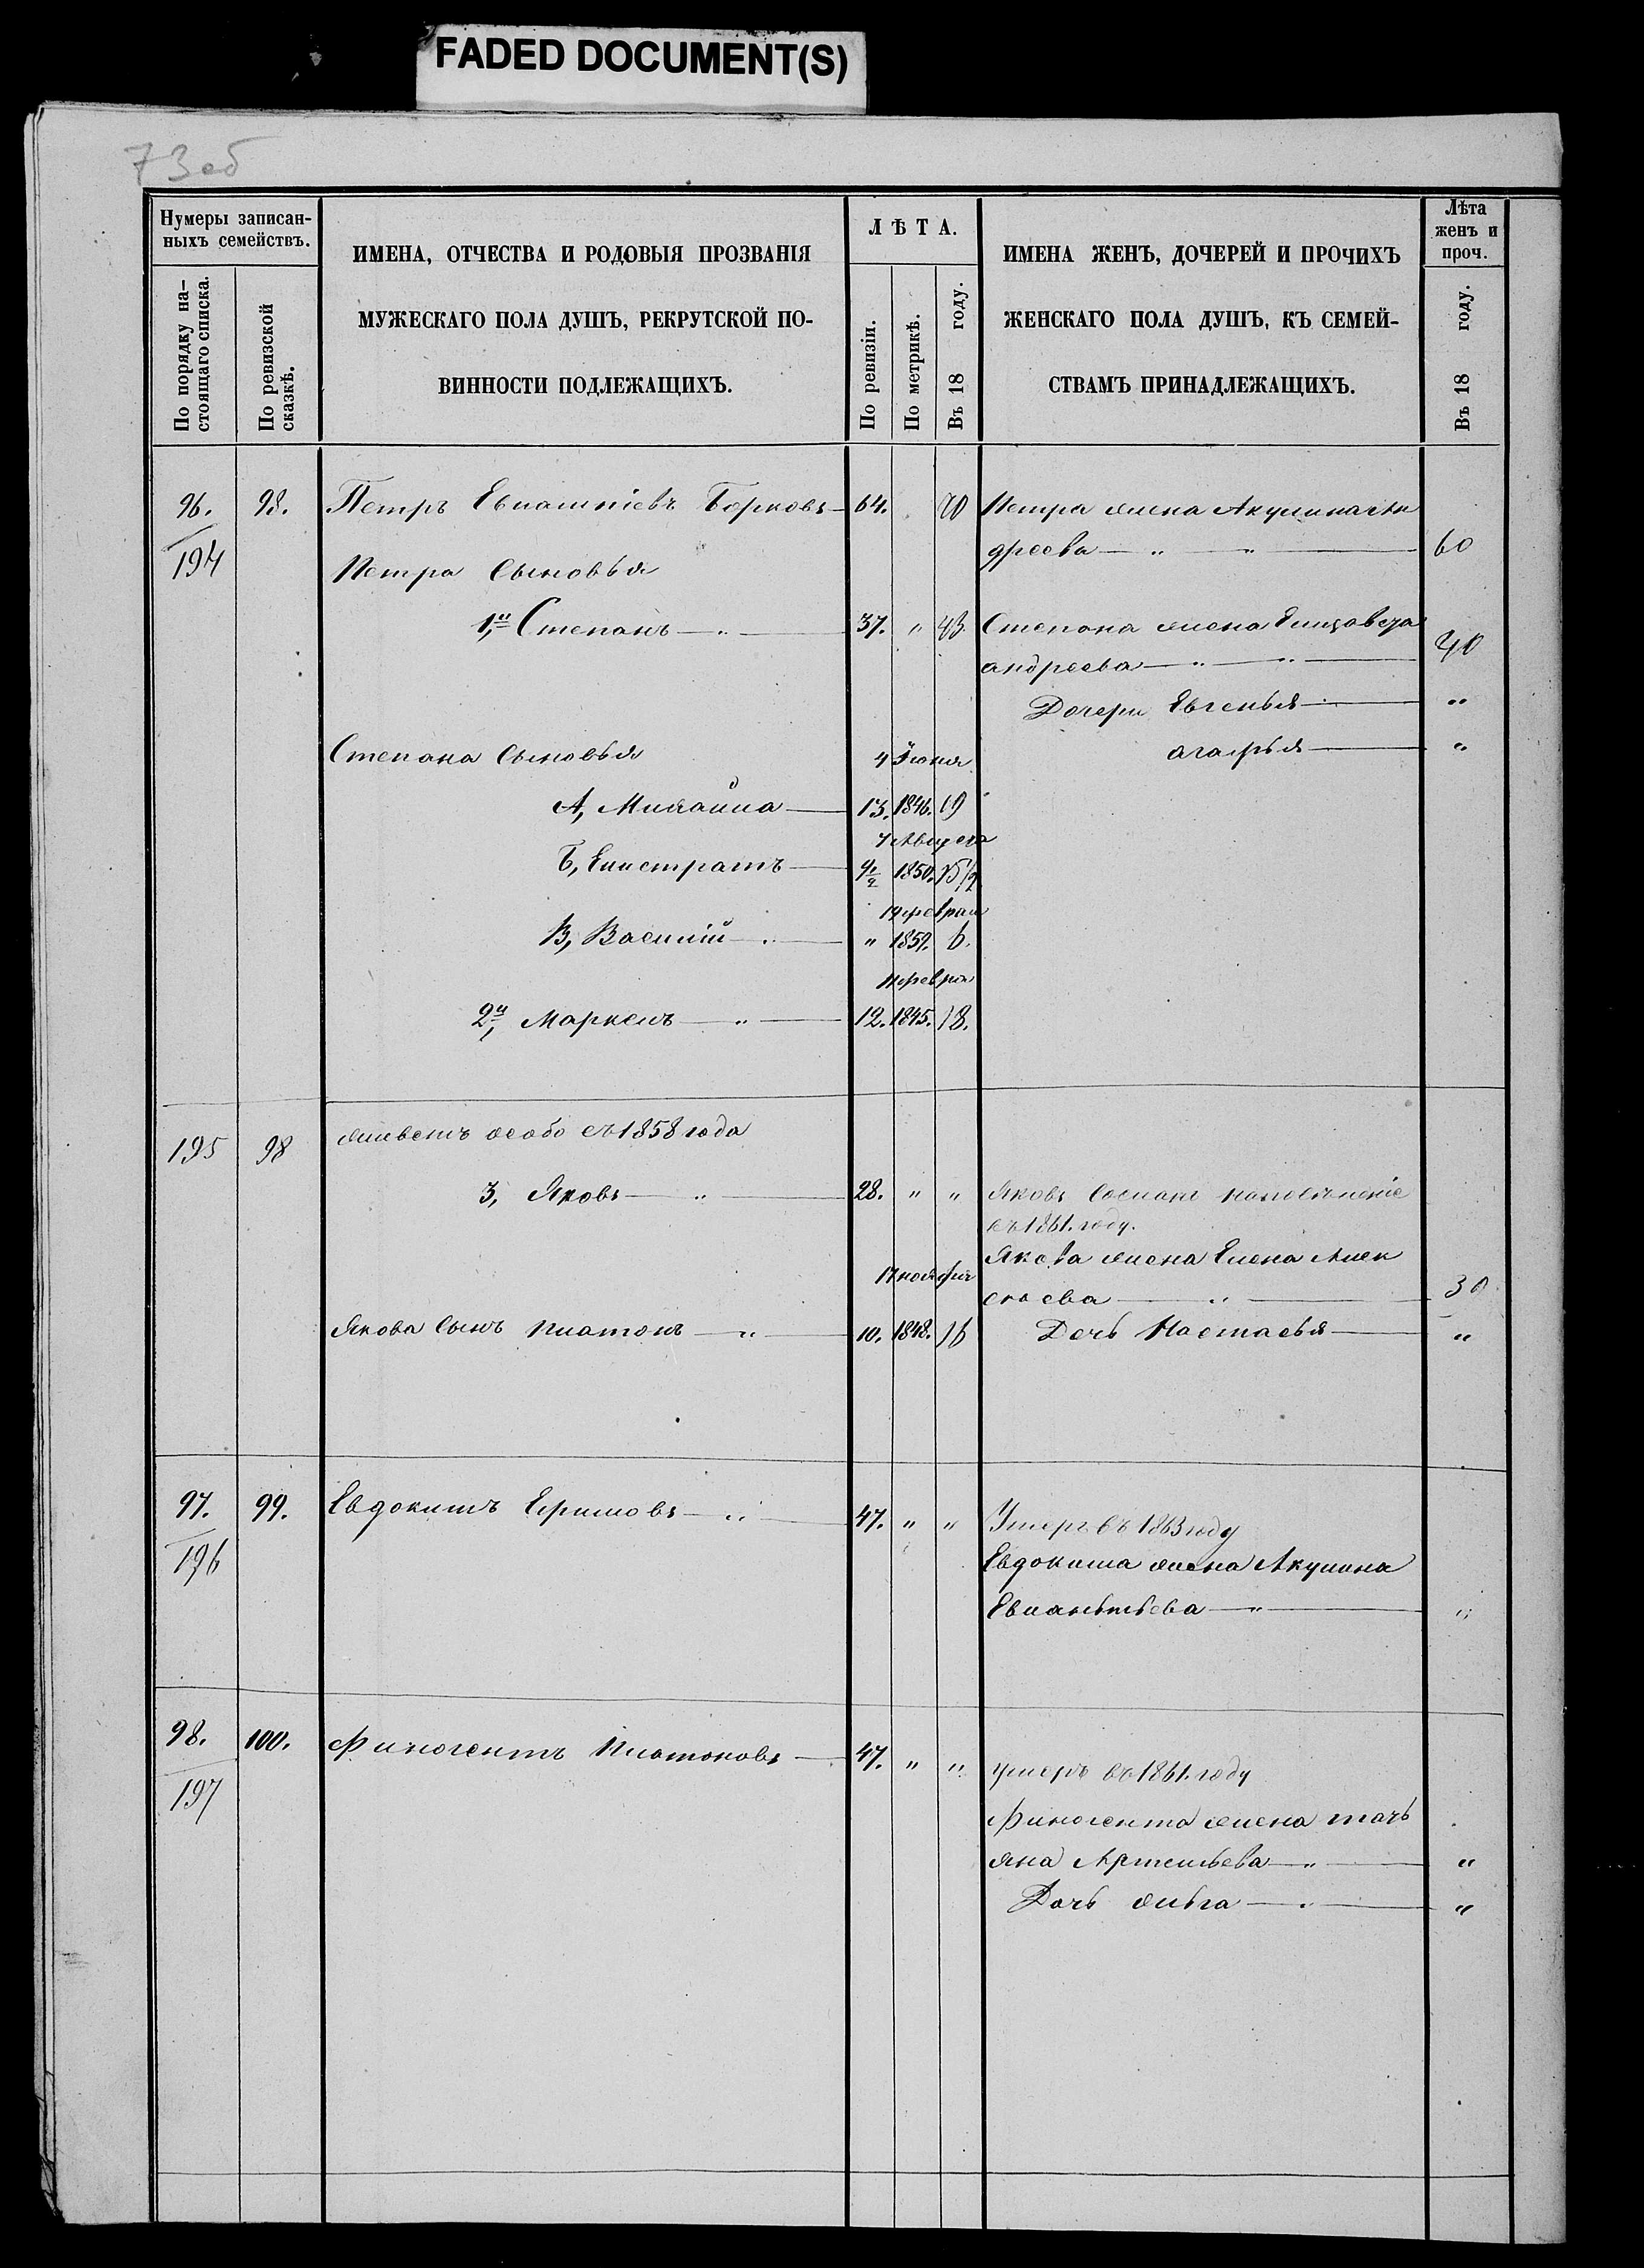 FADED DOCUMENT(S)
73об
Нумеры записан-
ныхъ семействъ.
По порядку на-
стоящаго списка.
По ревизской
сказкѣ.
ИМЕНА, ОТЧЕСТВА И РОДОВЫЯ ПРОЗВАНІЯ
МУЖЕСКАГО ПОЛА ДУШЪ, РЕКРУТСКОЙ ПО-
ВИННОСТИ ПОДЛЕЖАЩИХЪ.
ЛѢТА.
По ревизіи.
По метрикѣ.
Въ 18 году.
ИМЕНА ЖЕНЪ, ДОЧЕРЕЙ И ПРОЧИХЪ
ЖЕНСКАГО ПОЛА ДУШЪ, КЪ СЕМЕЙ-
СТВАМЪ ПРИНАДЛЕЖАЩИХЪ.
Лѣта
женъ и
проч.
Въ 18 году.
96. 98. Петръ Евлампіевъ Борковъ 64. 70 Петра жена Акулина Ан
194 дреева " " 60
Петра сыновья
1,й Степанъ " 37. " 43 Степана жена Елизавета
андреева " " 40
Дочери Евгенья "
Степана сыновья 4 Іюня агафья "
А, Михайла 13. 1846. 19
7 Августа
Б, Елистратъ 9½ 1850. 15½
19 феврал
В, Василій " 1859. 6.
11 февра
2й, Маркелъ " 12. 1845. 18.
195 98 живетъ особо съ 1858 года
3, Яковъ " 28. " " Яковъ Сосланъ на поселеніе
въ 1861. году.
Якова жена Елена Алек
17 ноября сѣева " 30
Якова сынъ Платонъ " 10. 1848. 16 Дочь Настасья "
97. 99. Евдокимъ Ефимовъ " 47. " " Умеръ въ 1863 году
196 Евдокима жена Акулина
Евланьтьева " "
98. 100. Финогентъ Платоновъ 47. " " умеръ въ 1861. году
197 Финогента жена тать
яна Артемьева " "
Дочь ольга "